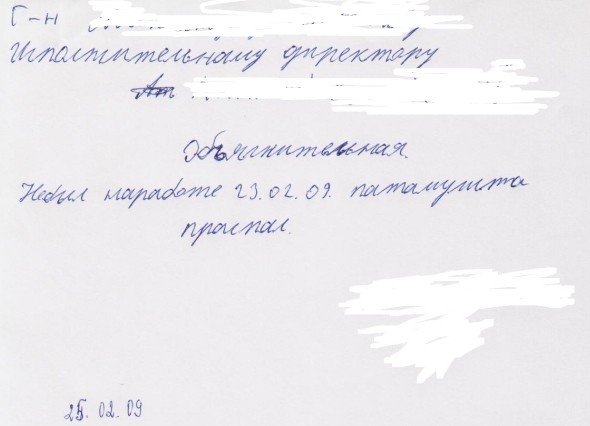 Г-н
Исполнительному директору
Объяснительная.
Небыл наработе 23.02.09. патамушта
проспал.
25.02.09